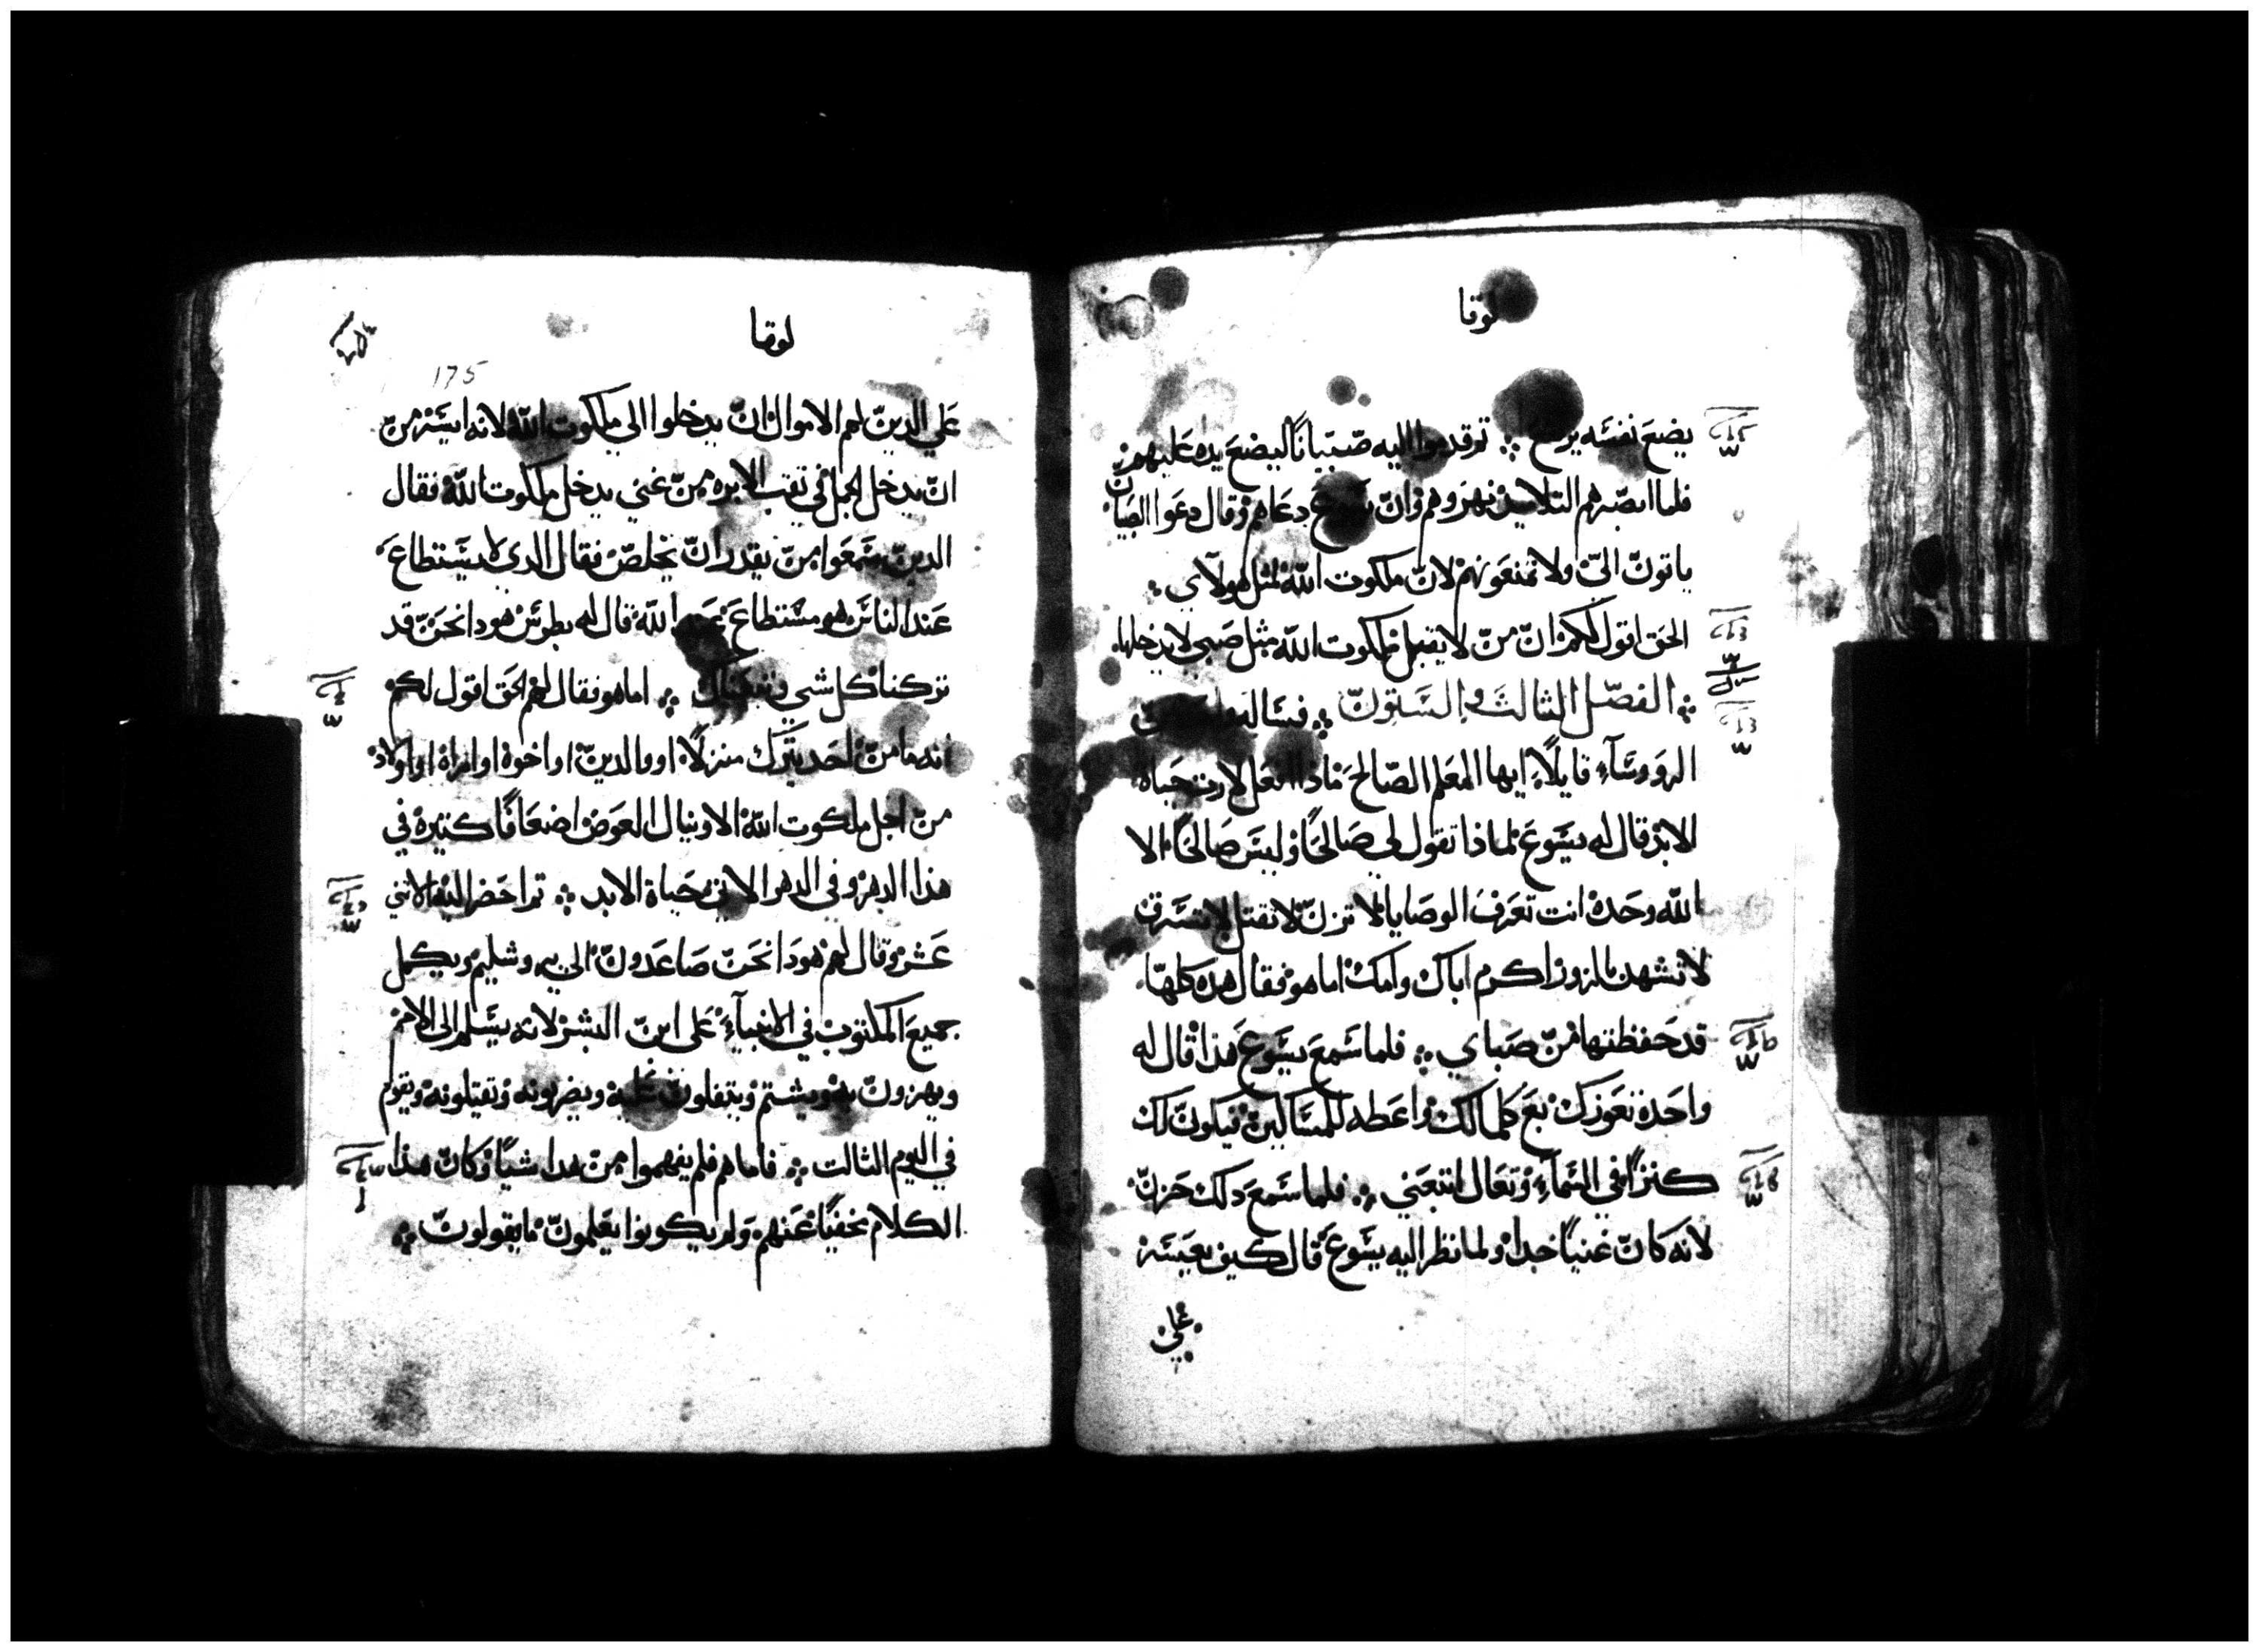 لوقا
يضع نفسه يرتفع ⁘ ثم قدموا اليه صبيانًا ليضع يده عليهم
فلما ابصرهم التلاميذ نهروهم وان يسوع دعاهم وقال دعوا الصبيان
ياتون اليّ ولا تمنعونهم لان ملكوت الله لمثل هولآي ⁘
الحق اقول لكم ان من لا يقبل ملكوت الله مثل صبي لا يدخلها
⁘ الفصل الثالث والستون ⁘ فساله من
الروسآء قايلًا ايها المعلم الصالح ماذا افعل لارث حياة
الابد قال له يسوع لماذا تقول لي صالحًا وليس صالحًا الا
الله وحده انت تعرف الوصايا لا تزن لا تقتل لا تسرق
لا تشهد بالزور اكرم اباك وامك اما هو فقال هذه كلها
قد حفظتها من صباي ⁘ فلما سمع يسوع هذا قال له
واحدة تعوزك بع كلما لك واعطه للمساكين فيكون لك
كنزًا في السمآء وتعال اتبعني ⁘ فلما سمع دلك حزن
لانه كان غنيًا جدا ولما نظر اليه يسوع قال كيف يعسر
علي
لوقا
175
علي الدين لهم الاموال ان يدخلوا الي ملكوت الله لانه ايسر من
ان يدخل الجمل في تقب الابره من غني يدخل ملكوت الله فقال
الدين سمعوا من يقدر ان يخلص فقال الدي لا يستطاع
عند الناس هو مستطاع عند الله قال له بطرس هودا نحن قد
تركنا كل شي وتبعناك ⁘ اما هو فقال لهم الحق اقول لكم
انه ما من احد يترك منزلًا او والدين او اخوة او امراة او اولاد
من اجل ملكوت الله الا وينال العوض اضعافًا كتيرة في
هذا الدهر وفي الدهر الاتي حياة الابد ⁘ تم احضر اليه الاتني
عشر وقال لهم هودا نحن صاعدون الي يروشليم ويكمل
جميع المكتوب في الانبيآء على ابن البشر لانه يسلم الى الامم
ويهزون به ويشتم ويتفلون عليه ويضربونه وتقتلونه ويقوم
في اليوم الثالت ⁘ فاما هم فلم يفهموا من هدا شيًا وكان هذا
الكلام مخفيًا عنهم ولم يكونوا يعلمون ما يقولون ⁘